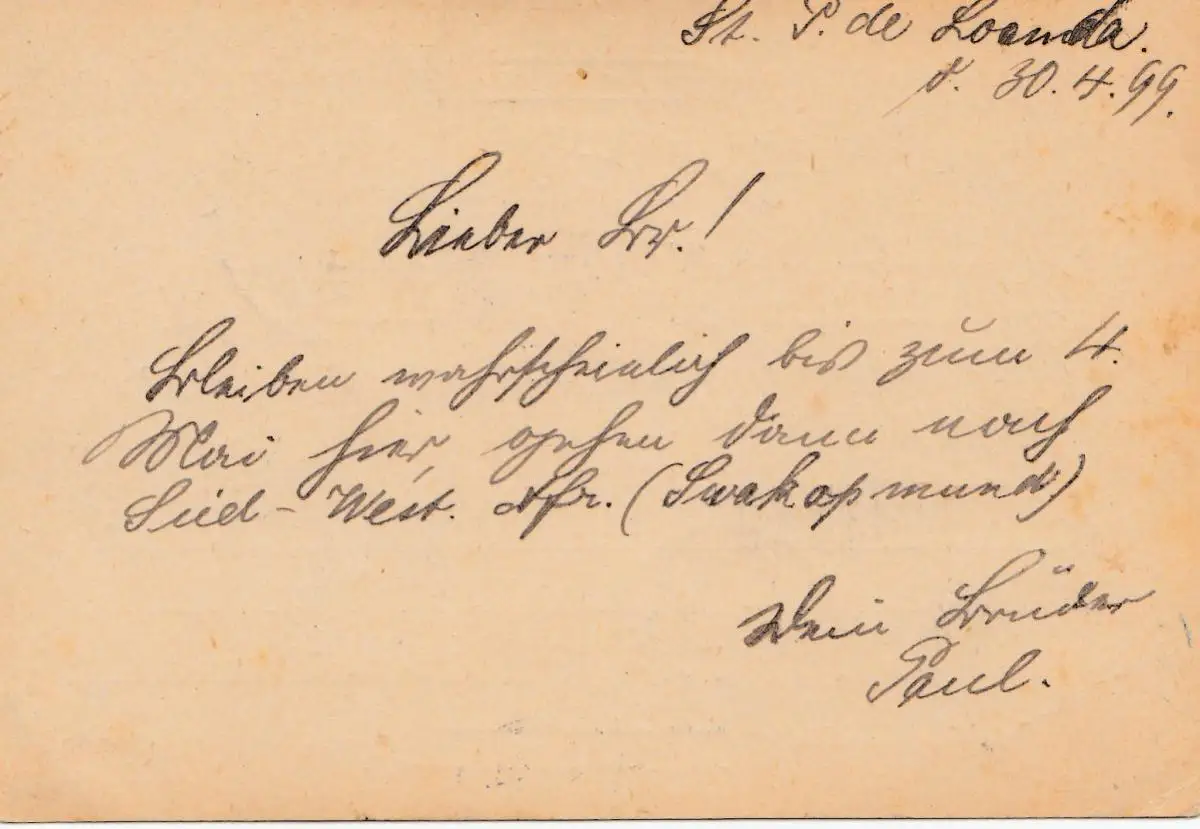 St. P. de Loanda.
d. 30.4.99.
Lieber Br.!
Bleiben wahrscheinlich bis zum 4.
Mai hier, gehen dann nach
Süd-West. Afr. (Swakopmund)
Dein Brüder
Paul.